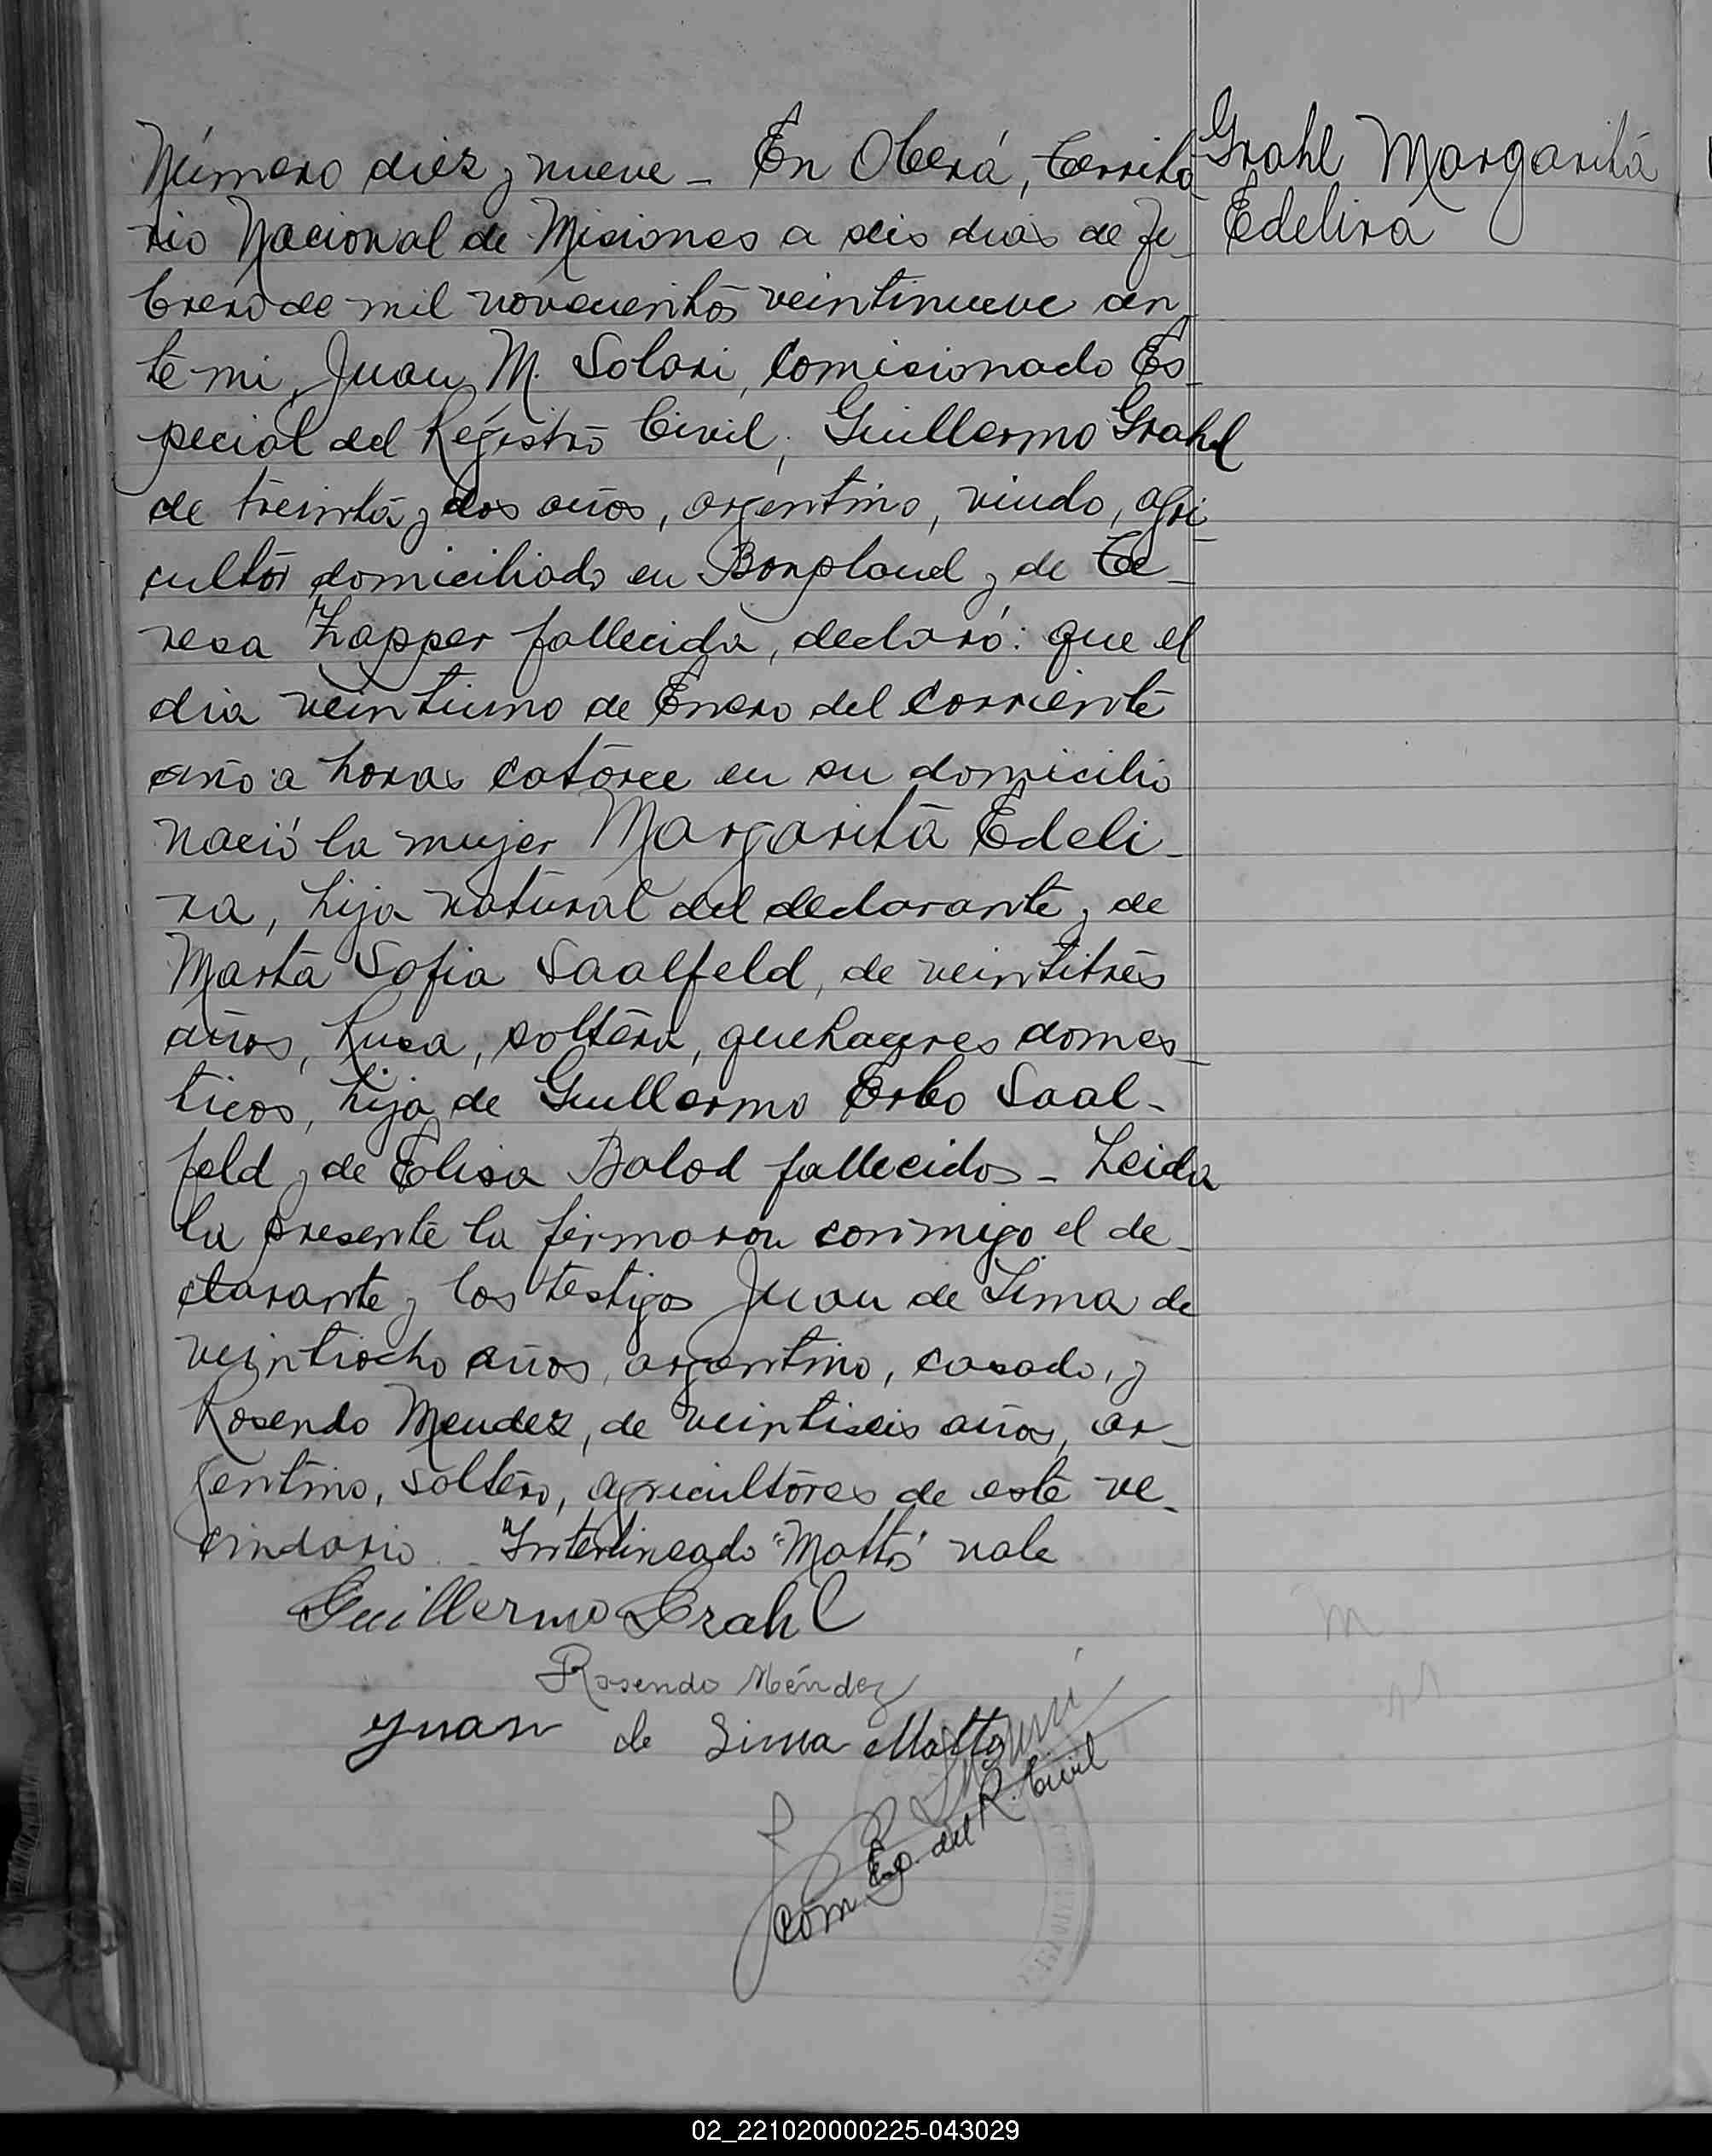 Número diez y nueve - En Oberá, territo
Grahl Margarita
rio Nacional de Misiones a seis dias de Fe
Edelira
brero de mil novecientos veintinueve an
te mi, Juan M. Solari, Comisionado Es
pecial del Registro Civil, Guillermo Grahl
de treinta y dos años, argentino, viudo, agri
cultor domiciliado en Bonpland y de Te
resa Zapper fallecida, declaró: que el
dia veintiuno de Enero del corriente
año a horas catorce en su domicilio
nació la mujer Margarita Edeli
ra, hija natural del declarante y de
Marta Sofia Saalfeld, de veintitrés
años, Rusa, soltera, quehaceres domes
ticos, hija de Guillermo Erbo Saal-
feld y de Elisa Balod fallecidos - Leida
la presente la firmaron conmigo el de
clarante y los testigos Juan de Lima de
veintiocho años, argentino, casado, y
Rosendo Mendez, de veintiseis años, ar
gentino, soltero, agricultores de este ve
cindario. - Interlineado "Matto" vale
Guillermo Grahl
Rosendo Méndez
Juan de Lima Matto
Com. Esp. del R. Civil
02_221020000225-043029